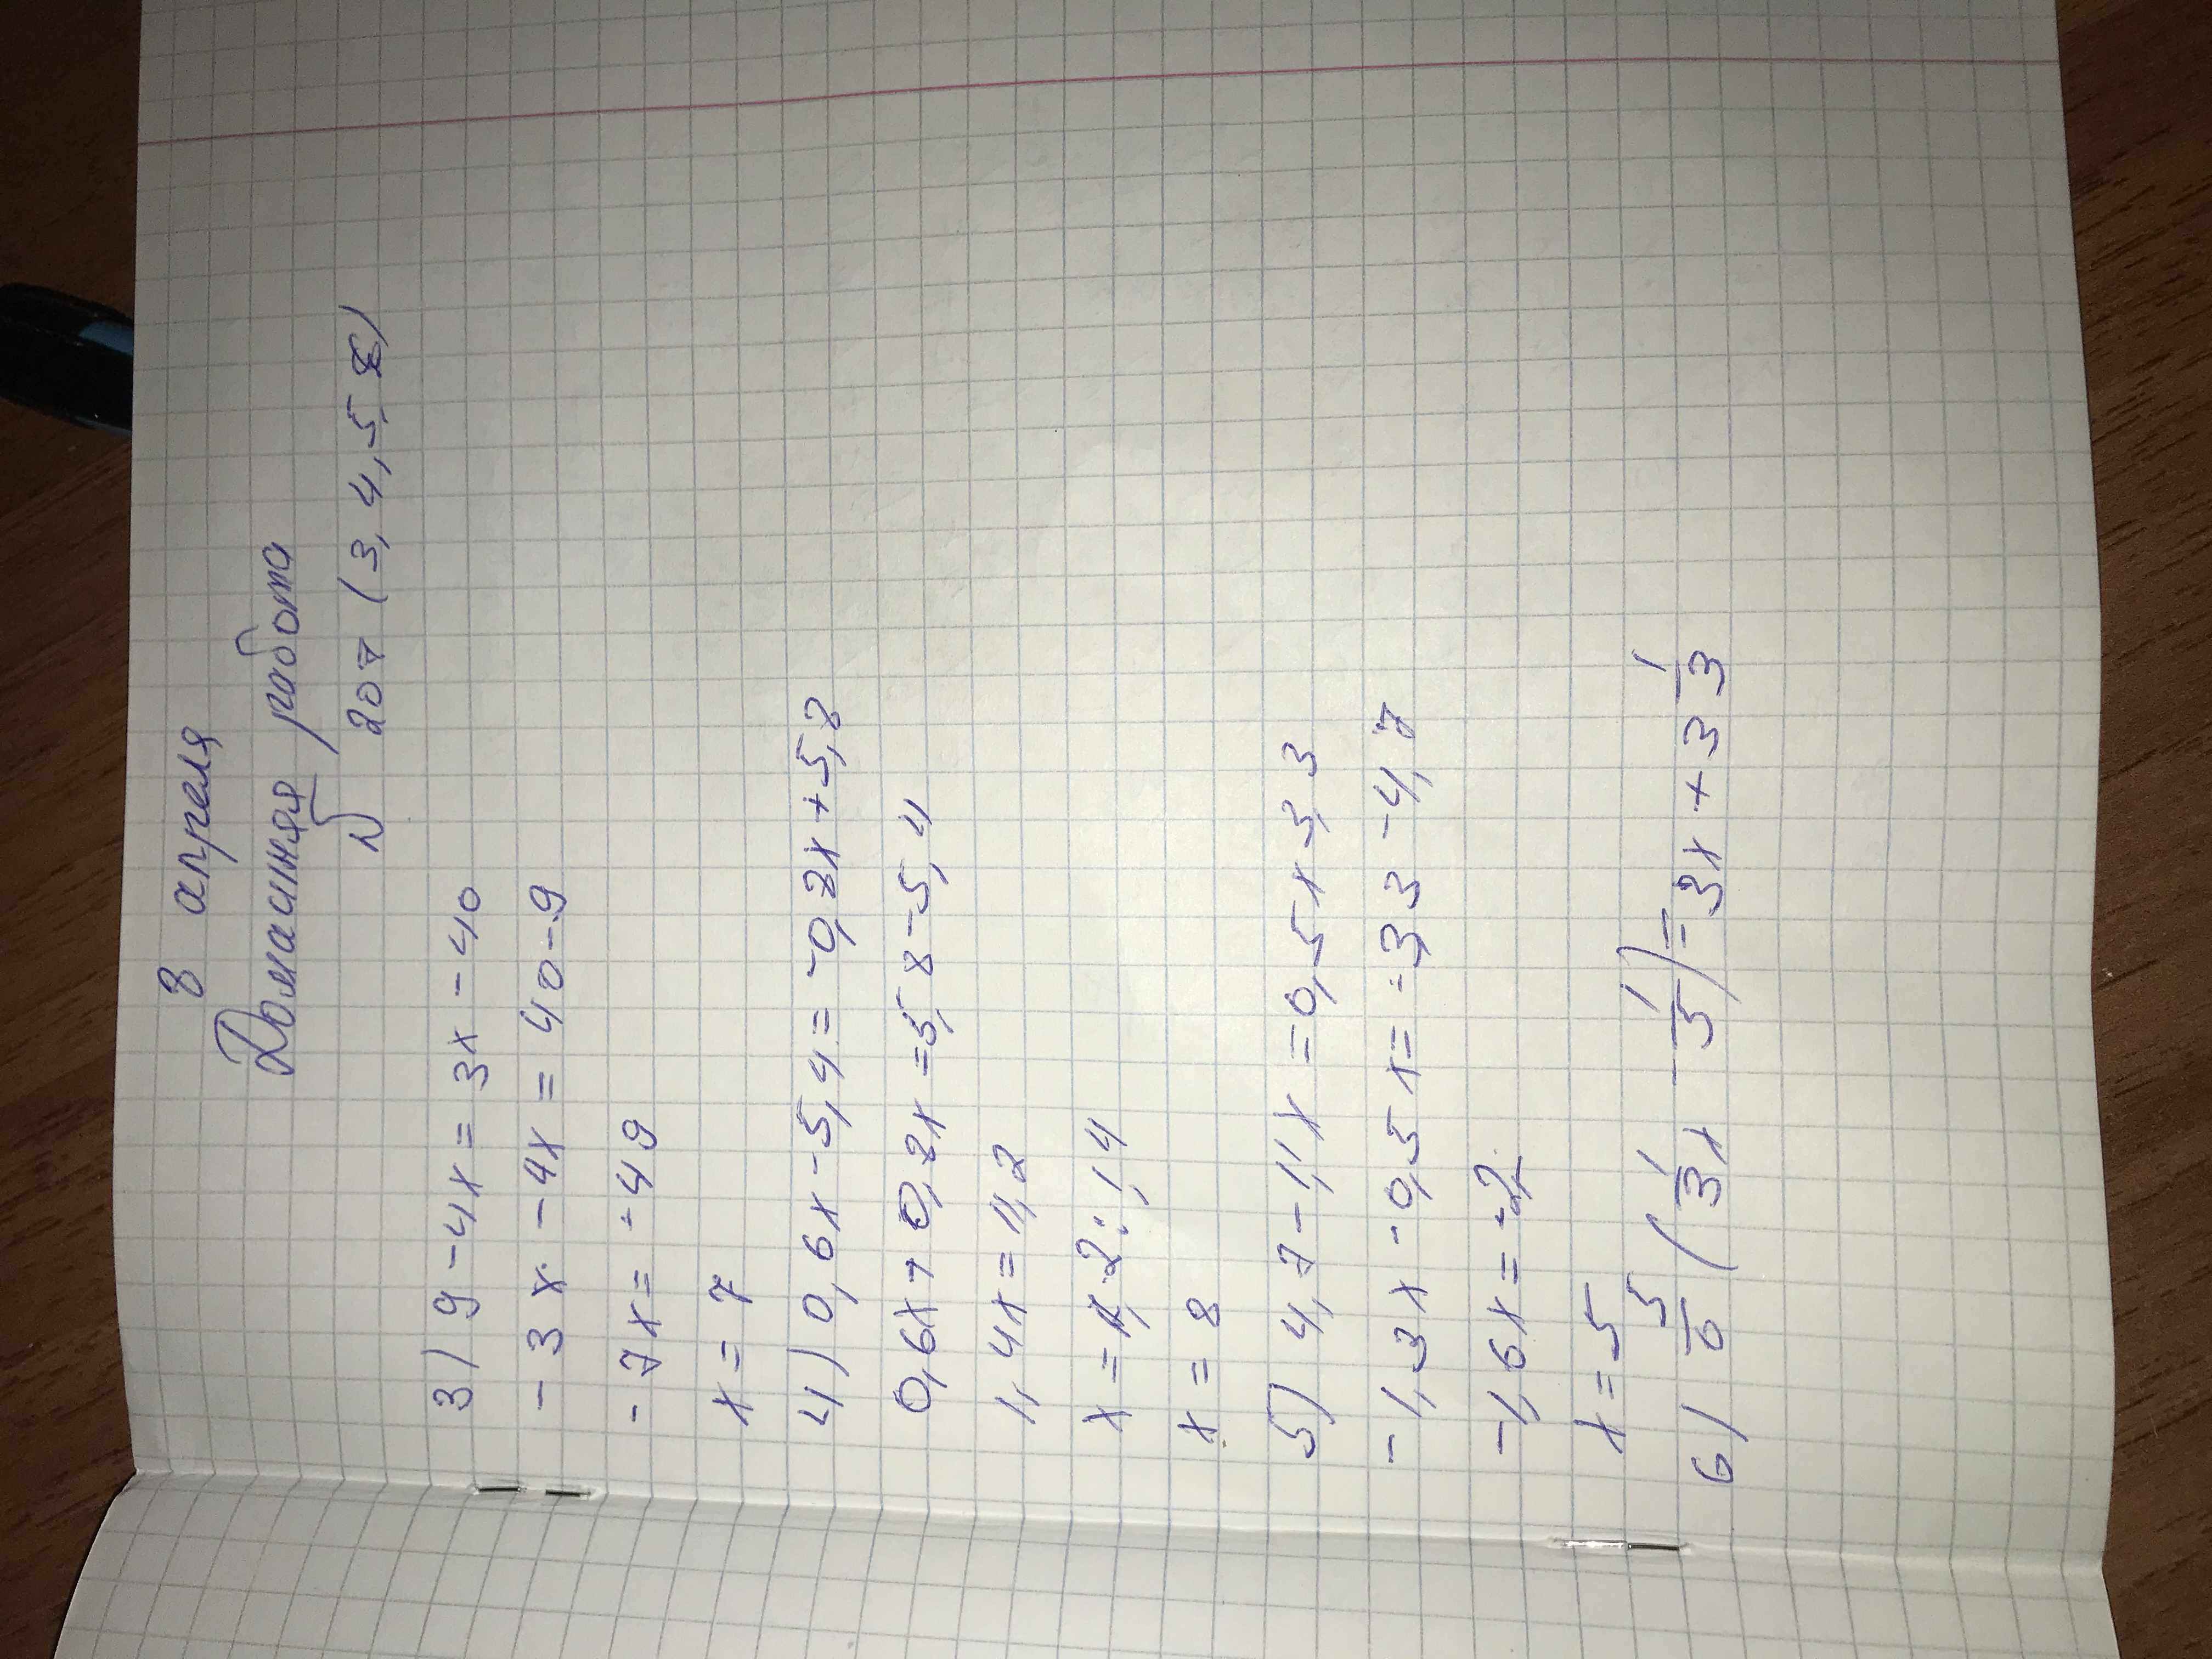 8 апреля
Домашняя работа
№ 207 (3, 4, 5, 6)
3) 9 - 4x = 3x - 40
- 3x - 4x = 40 - 9
- 7x = - 49
x = 7
4) 0,6x - 5,4 = -0,8x + 5,8
0,6x + 0,8x = 5,8 - 5,4
1,4x = 11,2
x = 11,2 : 1,4
x = 8
5) 4,7 - 1,1x = 0,5x - 3,3
- 1,3x - 0,5x = - 3,3 - 4,7
- 1,6x = - 2
x = 5
6) 5/6 (1/3 x - 1/5) = 3x + 3 1/3